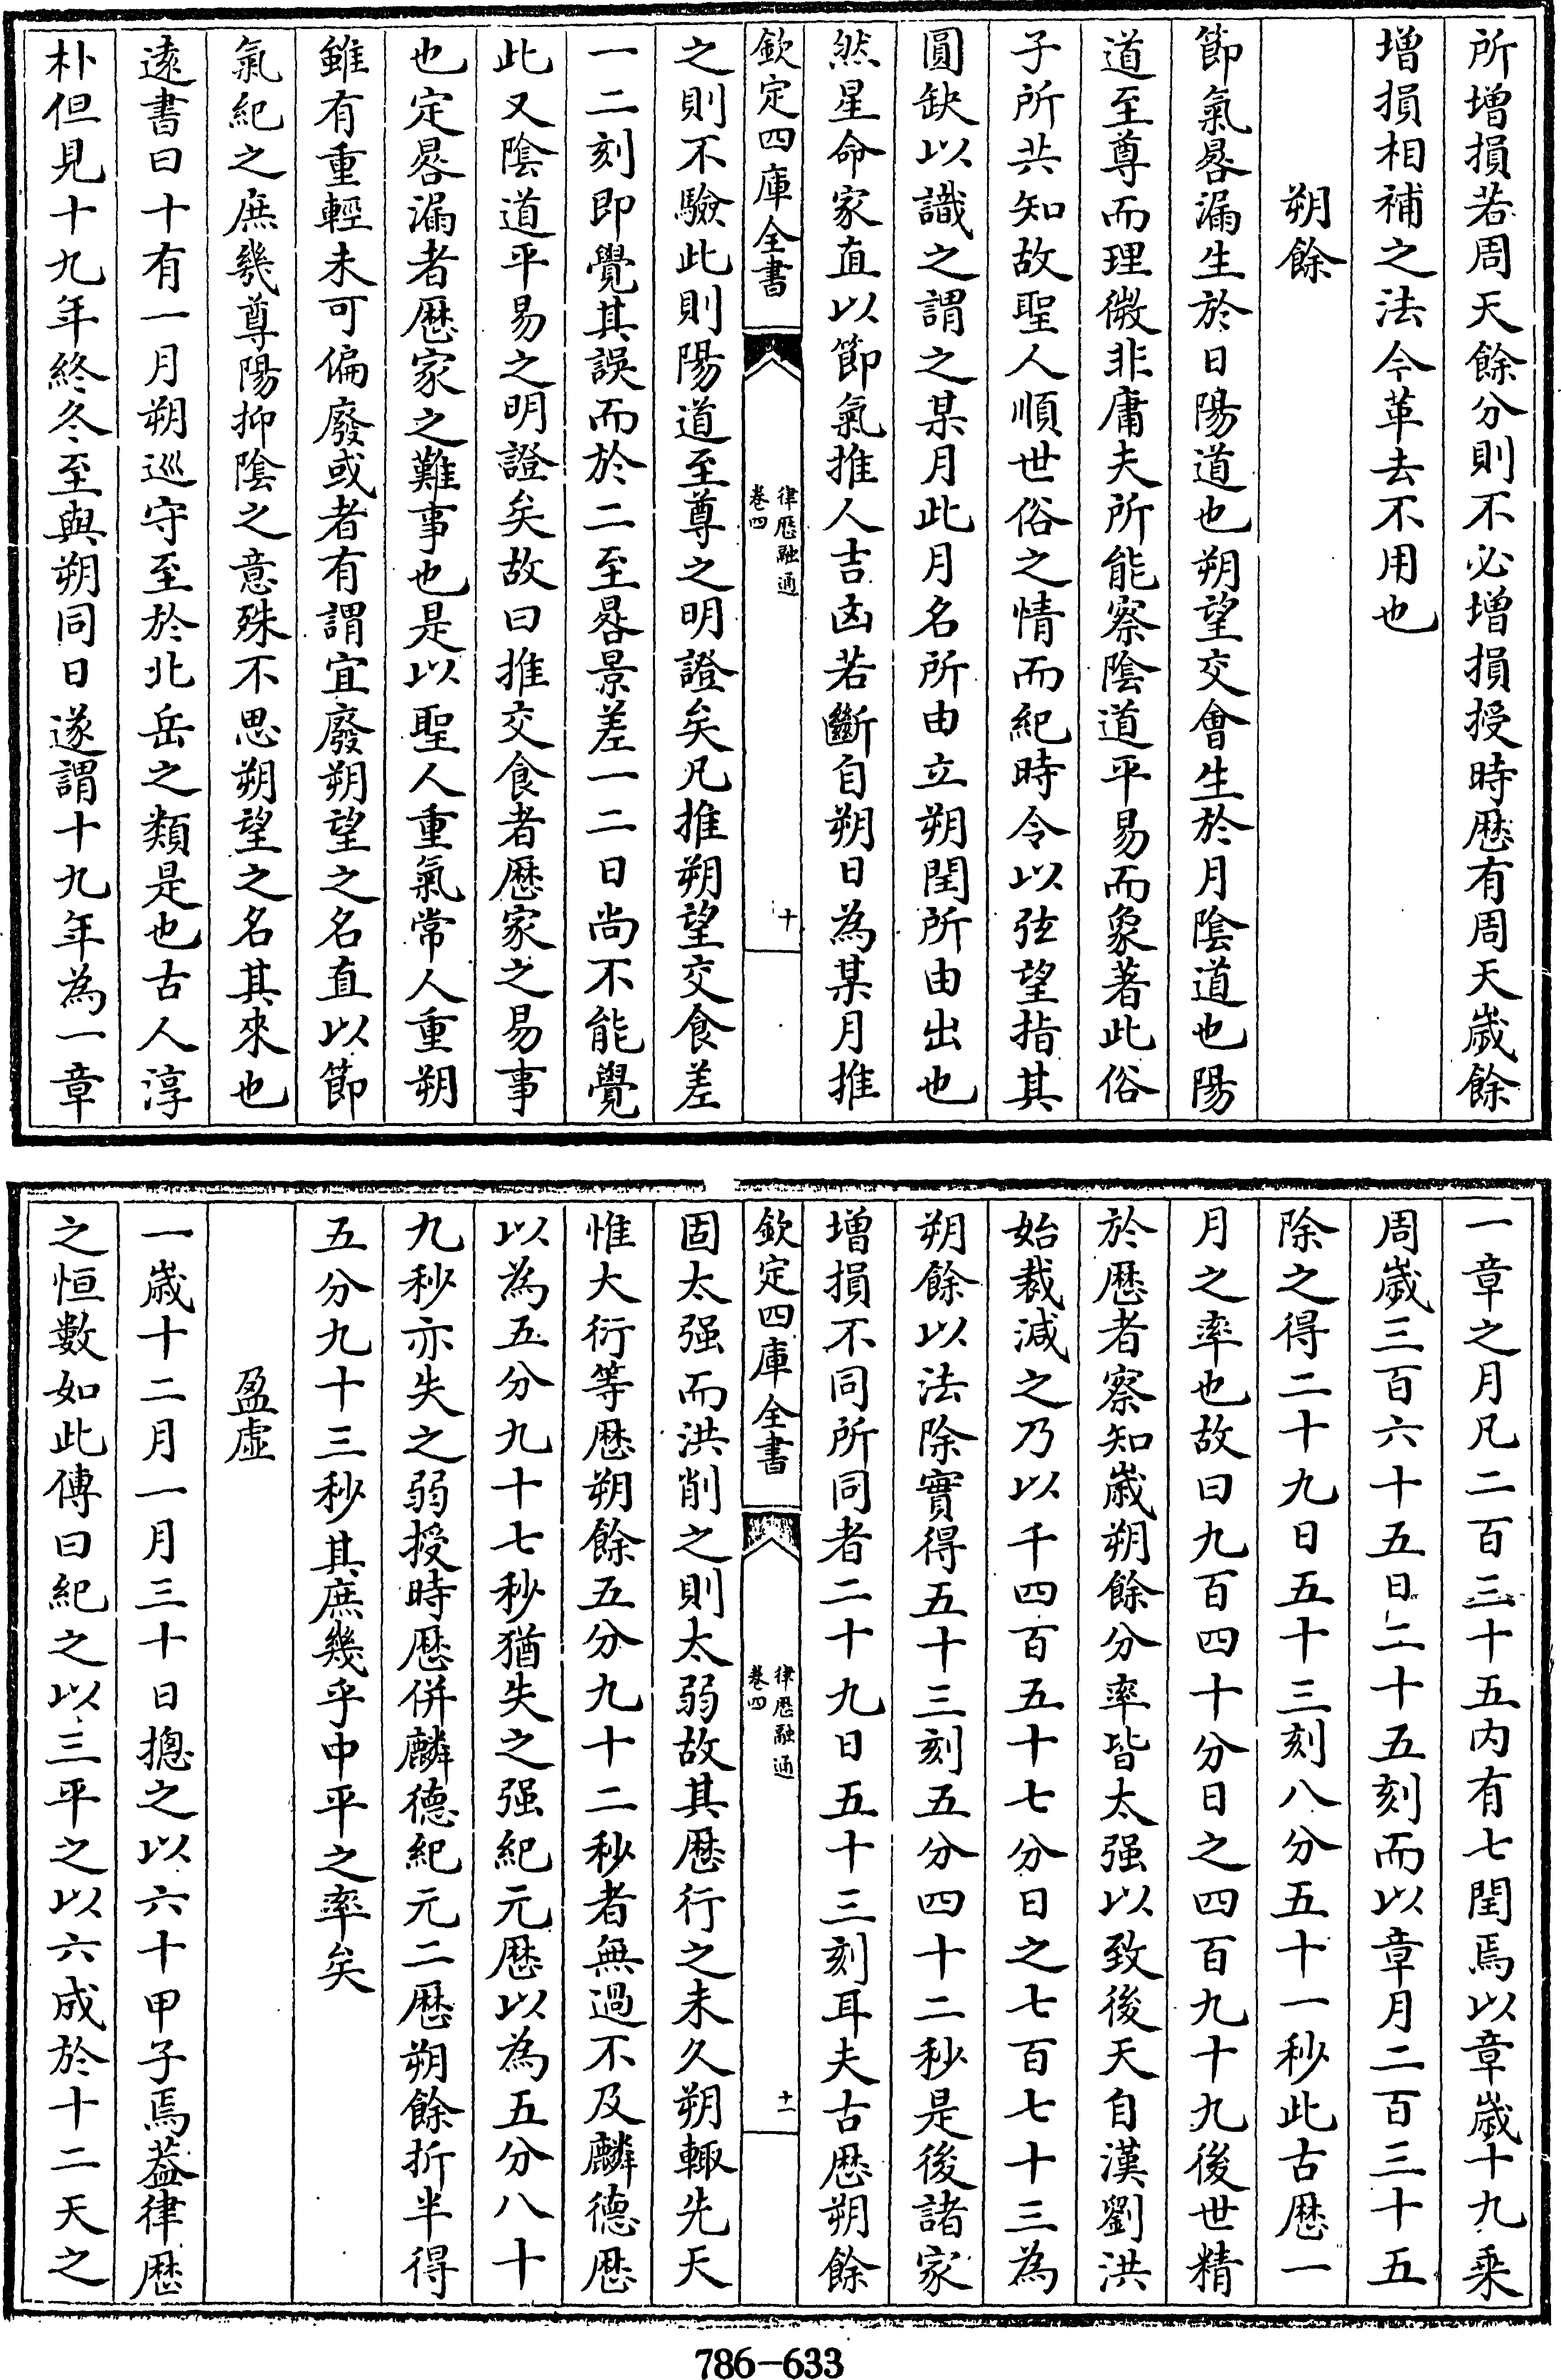 所增損若周天餘分則不必增損授時厯有周天歲餘
增損相補之法今革去不用也
朔餘
節氣晷漏生於日陽道也朔望交會生於月陰道也陽
道至尊而理微非庸夫所能察陰道平易而象著此俗
子所共知故聖人順世俗之情而紀時令以弦望指其
圓缺以識之謂之某月此月名所由立朔閏所由出也
然星命家直以節氣推人吉凶若斷自朔日為某月推
欽定四庫全書
律厯融通
卷四
十
之則不驗此則陽道至尊之明證矣凡推朔望交食差
一二刻即覺其誤而於二至晷景差一二日尚不能覺
此又陰道平易之明證矣故曰推交食者厯家之易事
也定晷漏者厯家之難事也是以聖人重氣常人重朔
雖有重輕未可偏廢或者有謂宜廢朔望之名直以節
氣紀之庶幾尊陽抑陰之意殊不思朔望之名其來也
遠書曰十有一月朔巡守至於北岳之類是也古人淳
朴但見十九年終冬至與朔同日遂謂十九年為一章
一章之月凡二百三十五內有七閏焉以章歲十九乘
周歲三百六十五日二十五刻而以章月二百三十五
除之得二十九日五十三刻八分五十一秒此古厯一
月之率也故曰九百四十分日之四百九十九後世精
於厯者察知歲朔餘分率皆太强以致後天自漢劉洪
始裁減之乃以千四百五十七分日之七百七十三為
朔餘以法除實得五十三刻五分四十二秒是後諸家
增損不同所同者二十九日五十三刻耳夫古厯朔餘
欽定四庫全書
律厯融通
卷四
十一
固太强而洪削之則太弱故其厯行之未久朔輙先天
惟大衍等厯朔餘五分九十二秒者無過不及麟德厯
以為五分九十七秒猶失之强紀元厯以為五分八十
九秒亦失之弱授時厯併麟德紀元二厯朔餘折半得
五分九十三秒其庶幾乎中平之率矣
盈虛
一歲十二月一月三十日摠之以六十甲子焉葢律厯
之恒數如此傳曰紀之以三平之以六成於十二天之
786-633